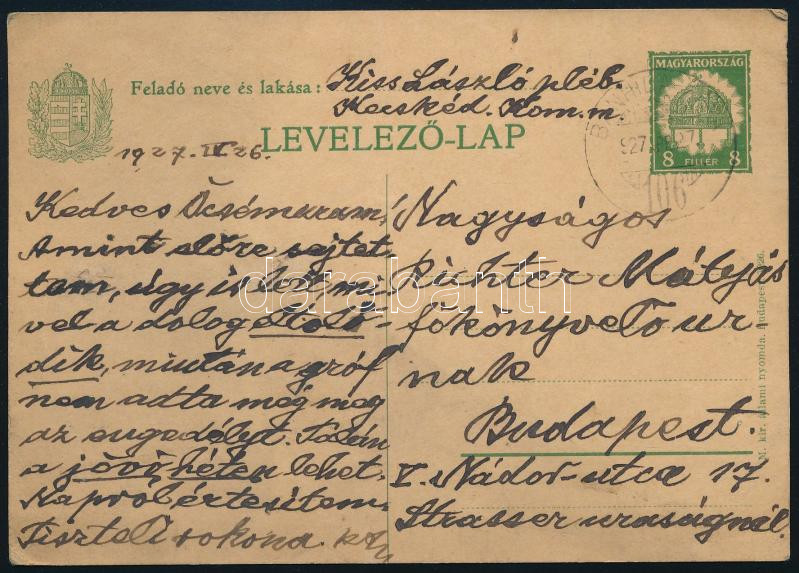 MAGYARORSZÁG
8 FILLÉR 8
Feladó neve és lakása: Kiss László pléb.
Kecskéd. Kom. m.
LEVELEZŐ-LAP
1927. IV. 26.
106
Kedves Öcsémuram!
Amint előre sejtet-
tem, úgy is lett, mi-
vel a dolog eltoló-
dik, miután a gróf
nem adta még meg
az engedélyt. Talán
a jövő héten lehet.
Napról értesítem.
Tisztelő rokona.
Nagyságos
Richter Mátyás
főkönyvelő úr
nak
Budapest.
V. Nádor-utca 17.
Strasser uraságnál.
M. kir. állami nyomda. Budapest, 1926.
darabanth